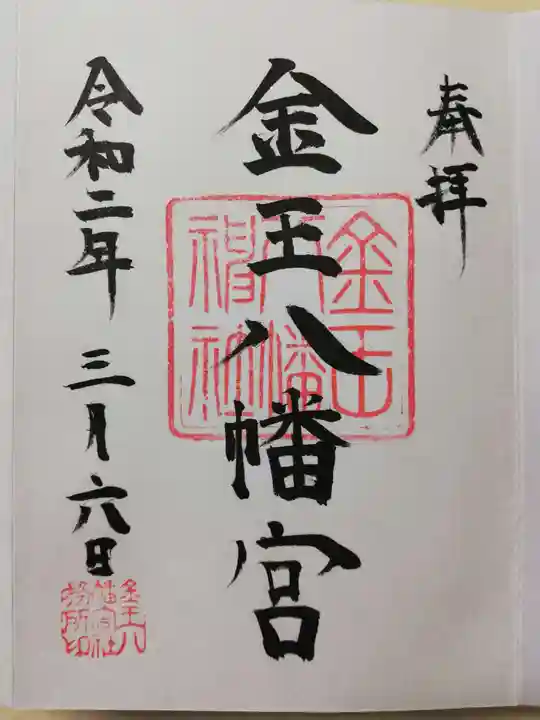 奉拝
金王八幡宮
金王八幡神社
令和二年 三月六日
金王八幡宮社務所印